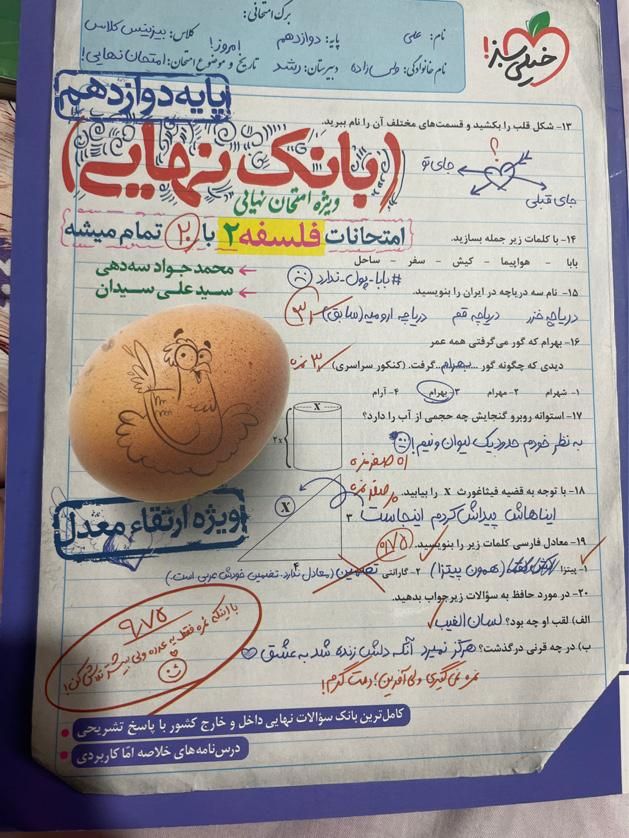 برگ امتحانی:
نام: علی
پایه: دوازدهم
کلاس: بیزینس کلاس
نام خانوادگی: ولی‌زاده
دبیرستان: رشد
تاریخ و موضوع امتحان: امروز! امتحان نهایی!
خیلی سبز!
پایه دوازدهم
(بانک نهایی)
ویژه امتحان نهایی
امتحانات فلسفه ۲ با ۲۰ تمام میشه
محمدجواد سه‌دهی
سیدعلی سیدان
۱۳- شکل قلب را بکشید و قسمت‌های مختلف آن را نام ببرید.
؟
جای تو
جای قبلی
۱۴- با کلمات زیر جمله بسازید.
بابا - هواپیما - کیش - سفر - ساحل
#بابا-پول-ندارد
۱۵- نام سه دریاچه در ایران را بنویسید.
دریاچه خزر دریاچه قم دریاچه ارومیه (سابق)
۱۶- بهرام که گور می‌گرفتی همه عمر
دیدی که چگونه گور ...بهرام... گرفت. (کنکور سراسری)
۱- شهرام ۲- مهرام ۳- بهرام ۴- آرام
۱۷- استوانه روبرو گنجایش چه حجمی از آب را دارد؟
X
۲x
به نظر خودم حدود یک لیوان و نیم!
۱۸- با توجه به قضیه فیثاغورث X را بیابید.
X
۳
۴
ایناهاش پیداش کردم اینجاست
۱۹- معادل فارسی کلمات زیر را بنویسید.
۰/۷۵
۱- پیتزا (همون پیتزا) ۲- گارانتی تضمین (معادل ندارد. تضمین خودش عربی است.)
۲۰- در مورد حافظ به سؤالات زیر جواب بدهید.
الف) لقب او چه بود؟ لسان الغیب
ب) در چه قرنی درگذشت؟ هرگز نمیرد آنکه دلش زنده شد به عشق
نمره نمی‌گیری ولی آفرین! دمت گرم!
ویژه ارتقاء معدل
۹/۷۵
با اینکه نمره فقط یه عدده ولی بیشتر تلاش کن!
کامل‌ترین بانک سؤالات نهایی داخل و خارج کشور با پاسخ تشریحی
درس‌نامه‌های خلاصه امّا کاربردی